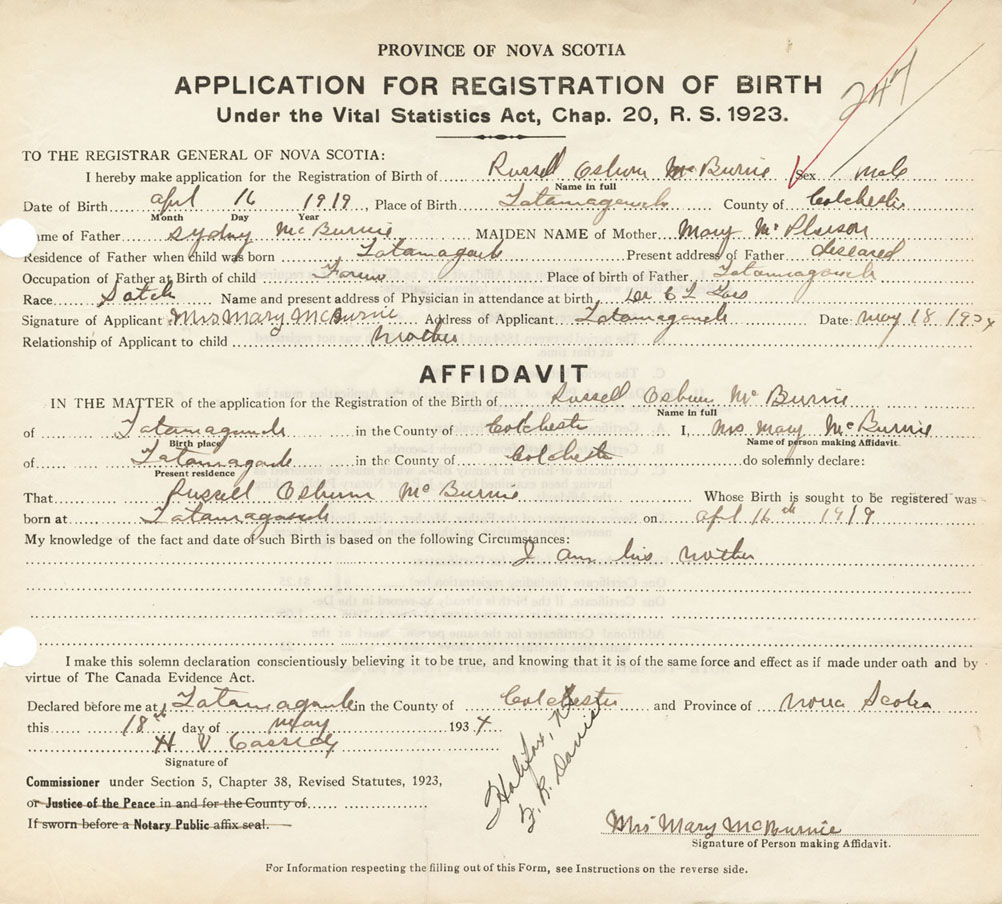 247
PROVINCE OF NOVA SCOTIA
APPLICATION FOR REGISTRATION OF BIRTH
Under the Vital Statistics Act, Chap. 20, R. S. 1923.
TO THE REGISTRAR GENERAL OF NOVA SCOTIA:
I hereby make application for the Registration of Birth of Russell Osburn McBurnie Sex Male
Name in full
Date of Birth April 16 1919, Place of Birth Tatamagouch County of Colchester
Month Day Year
Name of Father Sydny McBurnie MAIDEN NAME of Mother Mary McPherson
Residence of Father when child was born Tatamagouch Present address of Father deseared
Occupation of Father at Birth of child Farmer Place of birth of Father Tatamagouch
Race Scotch Name and present address of Physician in attendance at birth Dr
Signature of Applicant Mrs Mary McBurnie Address of Applicant Tatamagouch Date May 18 1934
Relationship of Applicant to child Mother
AFFIDAVIT
IN THE MATTER of the application for the Registration of the Birth of Russell Osburn McBurnie
Name in full
of Tatamagouch in the County of Colchester I, Mrs Mary McBurnie
Birth place Name of person making Affidavit.
of Tatamagouch in the County of Colchester do solemnly declare:
Present residence
That Russell Osburn McBurnie Whose Birth is sought to be registered was
born at Tatamagouch on April 16th 1919
My knowledge of the fact and date of such Birth is based on the following Circumstances:
I am his Mother
I make this solemn declaration conscientiously believing it to be true, and knowing that it is of the same force and effect as if made under oath and by
virtue of The Canada Evidence Act.
Declared before me at Tatamagouch in the County of Colchester and Province of Nova Scotia
this 18th day of May 1934
H V Cassidy
Signature of
Halifax, N.S
F. R. Davis
Commissioner under Section 5, Chapter 38, Revised Statutes, 1923,
or Justice of the Peace in and for the County of
If sworn before a Notary Public affix seal.
Mrs Mary McBurnie
Signature of Person making Affidavit.
For Information respecting the filling out of this Form, see Instructions on the reverse side.